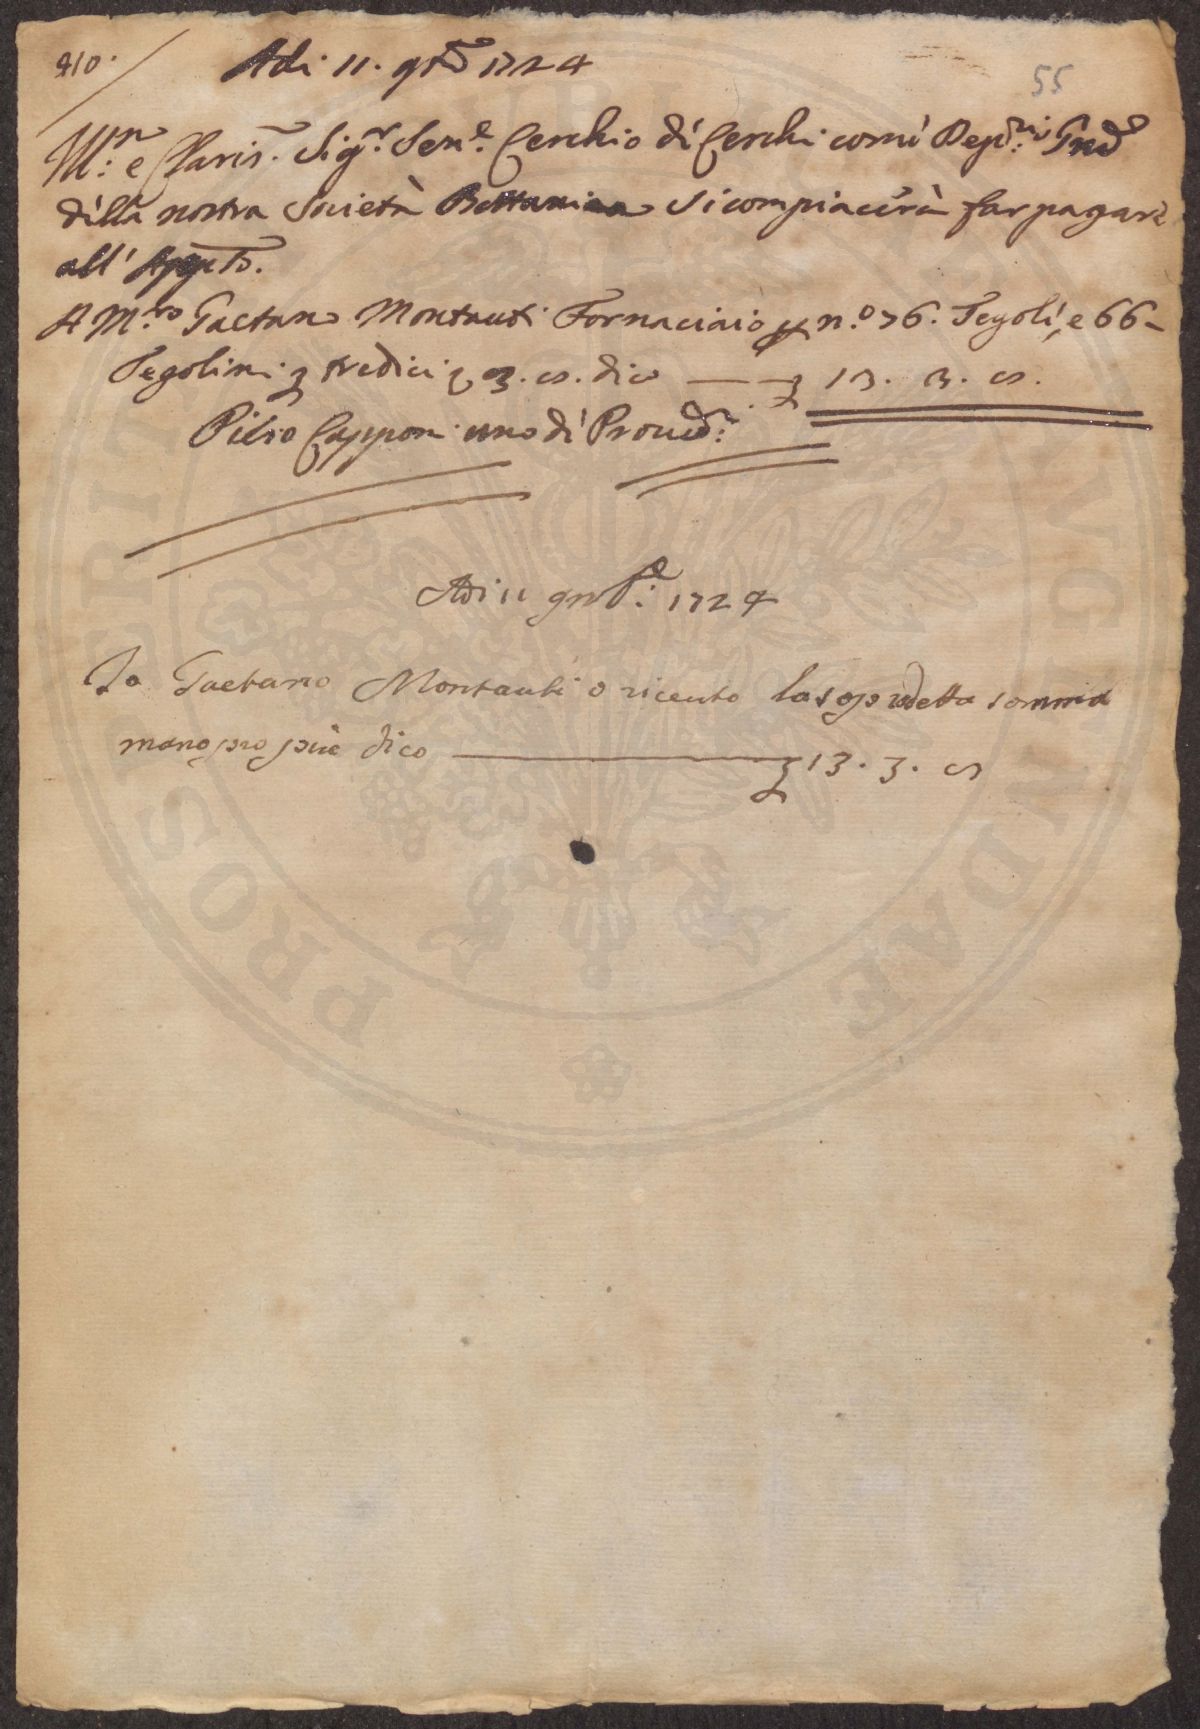 410.
Adi 11. 9bre 1724
55
Ill:mo e Claris.mo Sig.r Sen.e Cerchio di Cerchi come Dep:
della nostra Società Bottanica si compiacerà far pagare
all'
A M.ro Gaetano Montauti Fornaciaio p n.o 76. Tegoli, e 66
Tegolini £ tredici 3. cs. dico — £ 13. 3. cs.
Piero Capponi uno di Proued:ri
Adi 11 9mbre: 1724
Io Gaetano Montauti o riceuto la sopradetta somma
mano propria dico — £ 13. 3. cs